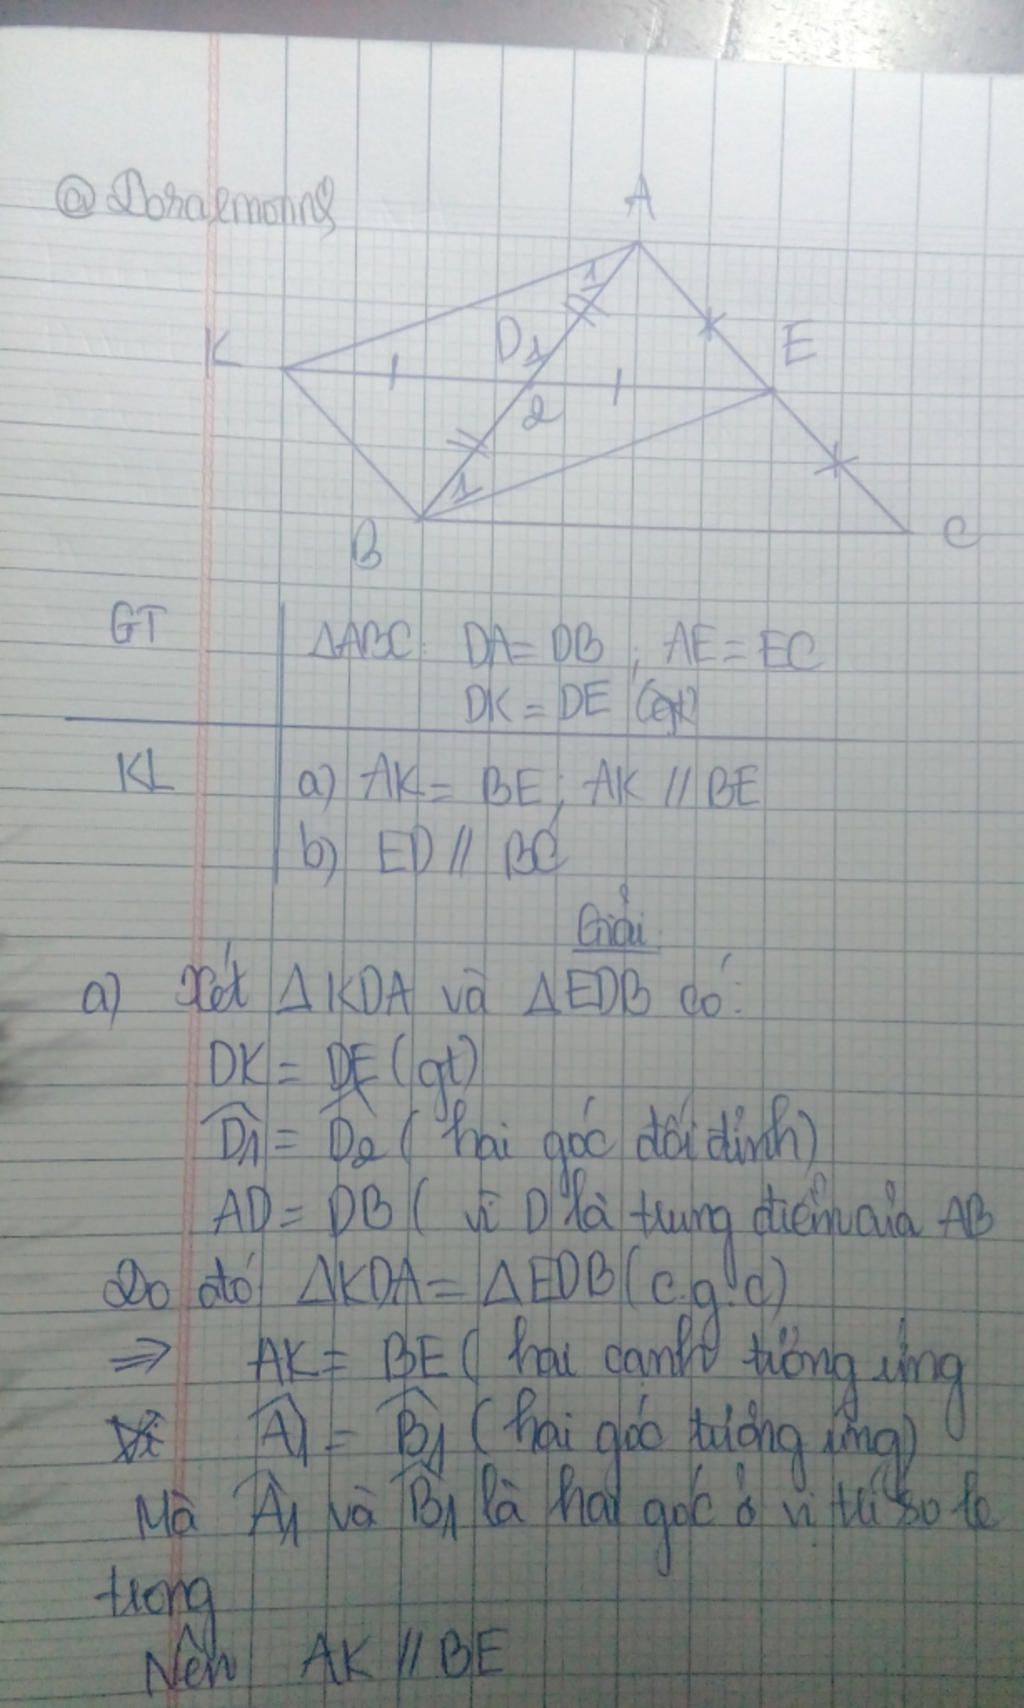 @Doraemonns
A
1
K
D 1
E
2
1
B
C
GT
ΔABC: DA = DB ; AE = EC
DK = DE (gt)
KL
a) AK = BE ; AK // BE
b) ED // BC
Giải
a) Xét ΔKDA và ΔEDB có:
DK = DE (gt)
D̂1 = D̂2 (hai góc đối đỉnh)
AD = DB ( vì D là trung điểm của AB
Do đó ΔKDA = ΔEDB (c.g.c)
⇒ AK = BE ( hai cạnh tương ứng
Â1 = B̂1 (hai góc tương ứng)
Mà Â1 và B̂1 là hai góc ở vị trí so le
trong
Nên AK // BE